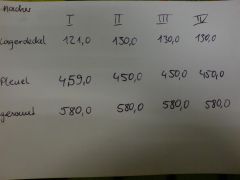 Nachher
I II III IV
Lagerdeckel 121,0 130,0 130,0 130,0
Pleuel 459,0 450,0 450,0 450,0
gesamt 580,0 580,0 580,0 580,0